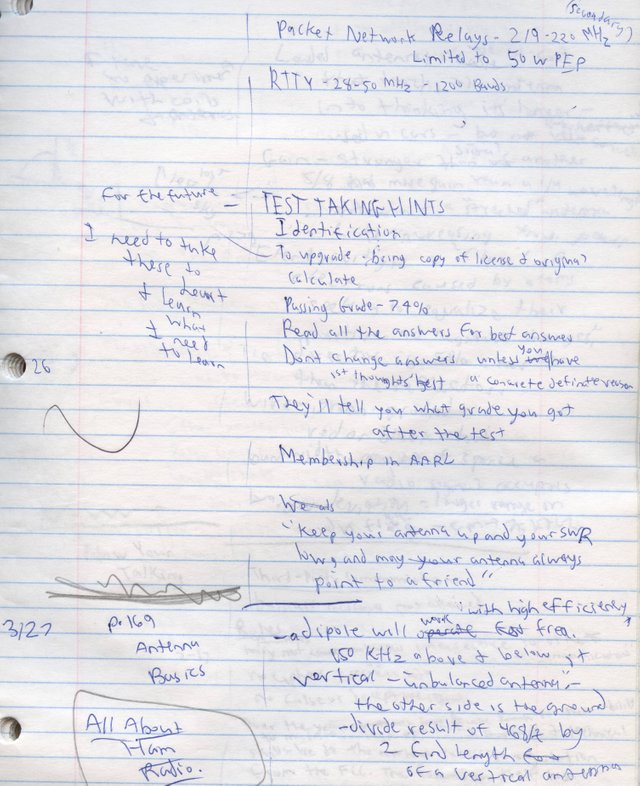 (secondary)
Packet Network Relays - 219-220 MHz
Limited to 50 w PEP
RTTY - 28-50 MHz - 1200 Bauds
For the future = TEST TAKING HINTS
Identification
I need to take
these to
I learn
what
I need
to learn
To upgrade - bring copy of license & original
Calculate
Passing Grade - 74%
Read all the answers for best answer
Don't change answers unless you have
1st thoughts best a concrete definite reason
26
They'll tell you what grade you got
after the test
Membership in AARL
We als
"Keep your antenna up and your SWR
low, and may your antenna always
point to a friend"
3/27
p. 169
Antenna
Basics
with high efficiency
- a dipole will work freq.
150 KHz above & below it
vertical - unbalanced antenna -
the other side is the ground
- divide result of 468/f by
2 find length
of a vertical antenna
All About
Ham
Radio.